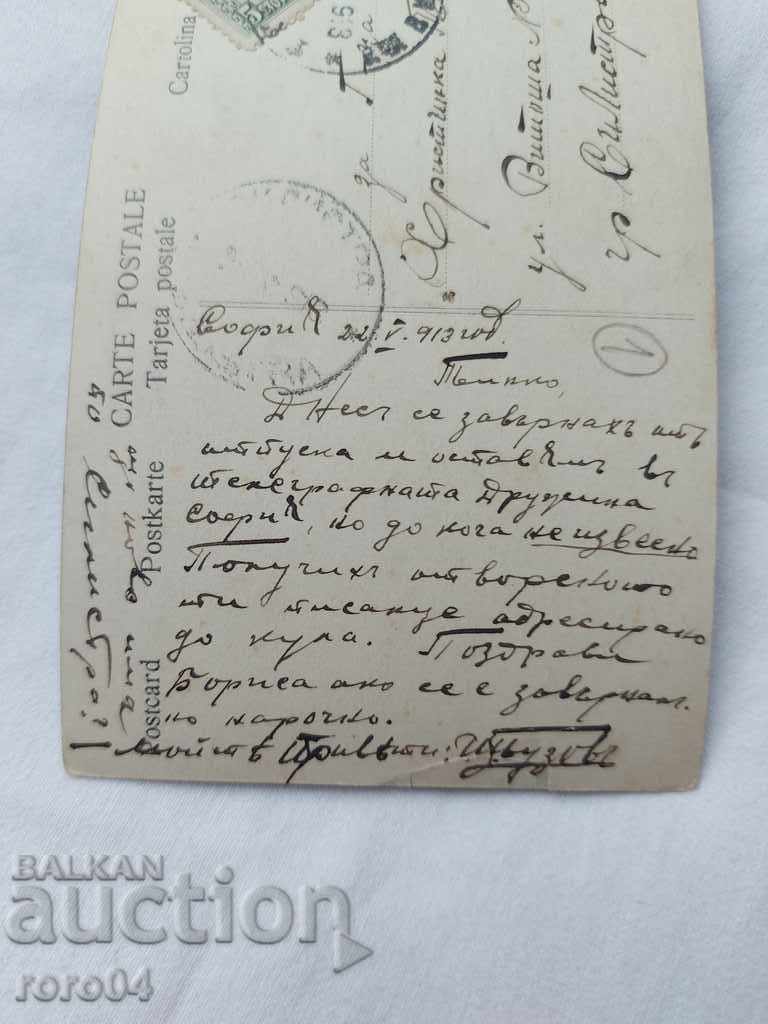 Cartolina
CARTE POSTALE
Tarjeta postale
Postkarte
Postcard
913
за Г-ца
Христинка
ул. Витоша №
гр Силистр
1
София 22 V. 913 год.
Пенко,
Днесъ се завърнахъ отъ
отпуска и оставамъ въ
телеграфната Дружина
София, но до кога неизвесно
Получихъ отворското
ти писание адресирано
до кула. Поздрави
Бориса ако се е завърнал.
но нарочно.
Моитѣ Привѣти:
ново има
Силистра?
BALKAN
auction
roro04